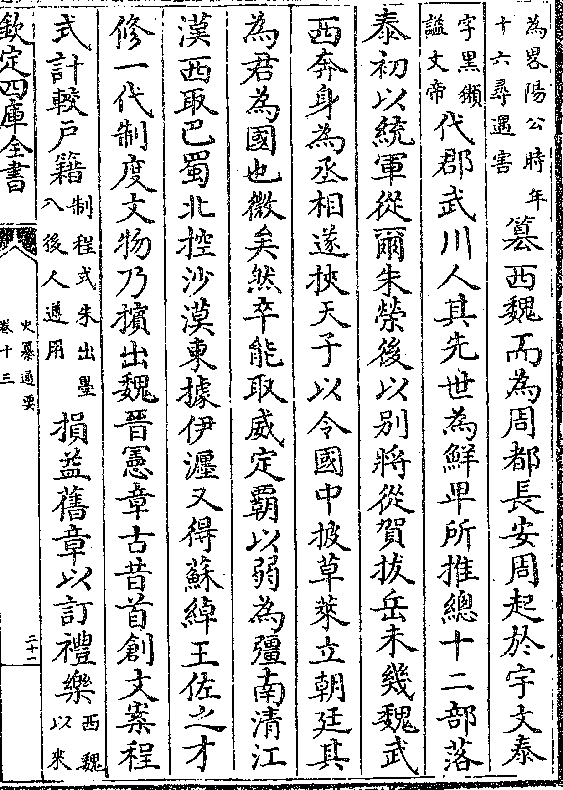 為畧陽公時年
十六尋遇害
簒西魏而為周都長安周起於宇文泰
字黑獺
諡文帝
代郡武川人其先世為鮮卑所推總十二部落
泰初以統軍從爾朱榮後以别將從賀拔岳未幾魏武
西奔身為丞相遂挾天子以令國中披草萊立朝廷其
為君為國也微矣然卒能取威定覇以弱為彊南清江
漢西取巴蜀北控沙漠東據伊瀍又得蘇綽王佐之才
修一代制度文物乃擯出魏晉憲章古昔首創文案程
式計較戶籍
制程式朱出墨
入後人遵用
損益舊章以訂禮樂
西魏
以來
欽定四庫全書
史纂通要
卷十三
二十一